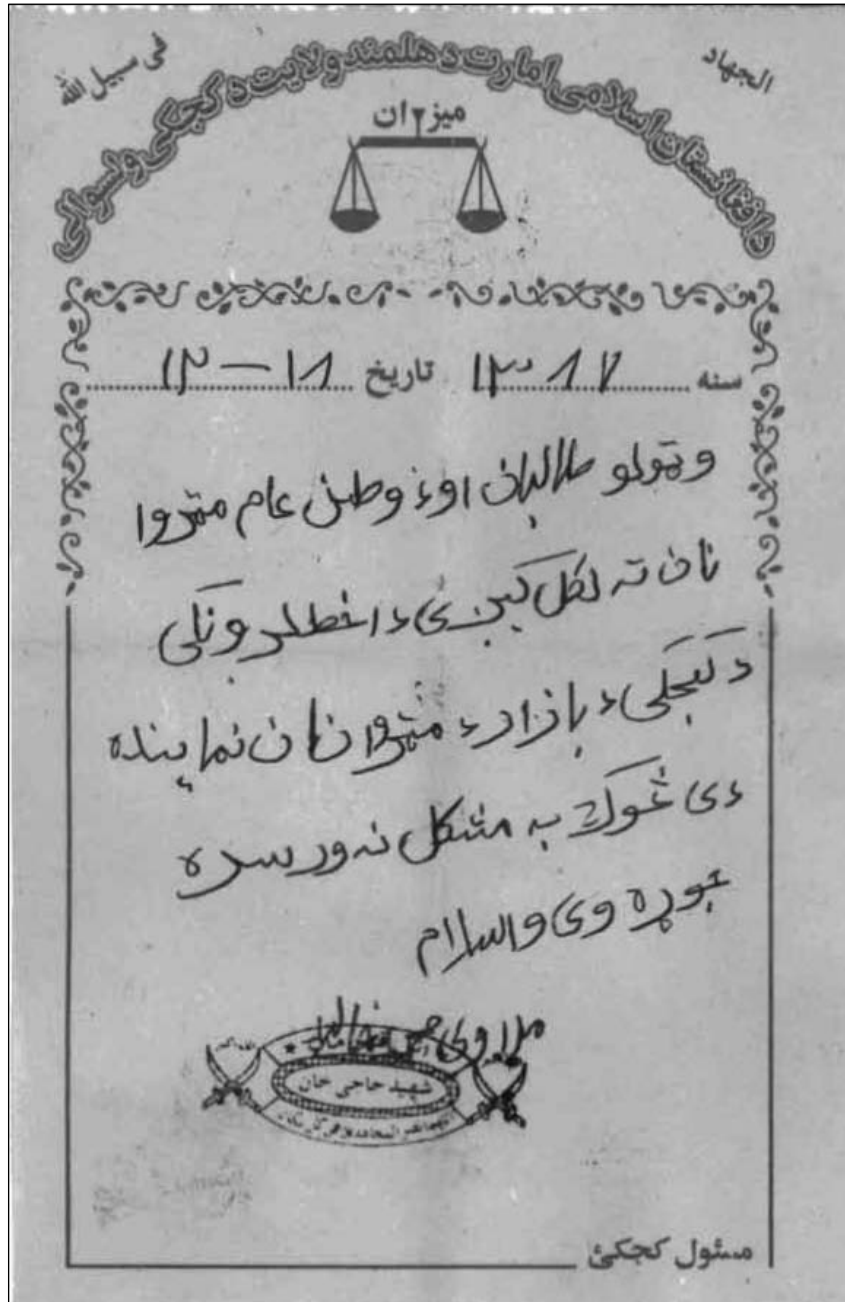 الجهاد
فی سبیل الله
د افغانستان اسلامی امارت د هلمند ولایت د کجکی ولسوالی
میزان
سنه ۱۳۸۷ تاریخ ۱۸ — ۱۲
و ټولو طالبانو او د وطن عام متروا
نان ته لکل کیږی د اخط لرونکی
د کجکی د بازار د متروانان نماینده
دی څوک به مشکل نه ورسره
جوړه وی والسلام
شهید حاجی خان
مسئول کجکئ